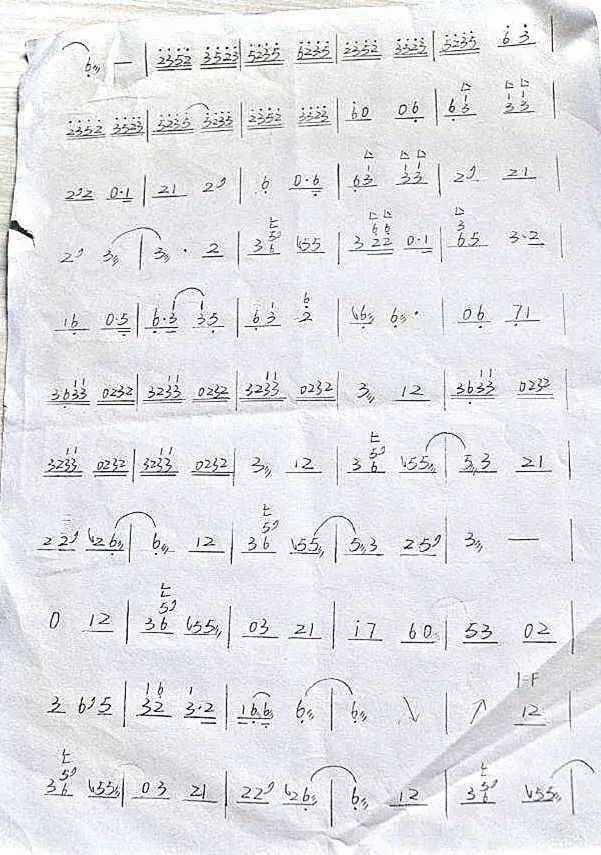 6 — | 2352 3523 | 5235 6235 | 2352 3523 | 5235 6 3 |
2352 3523 | 5235 5235 | 2352 3523 | 60 06 | 63 33 |
2 2 0·1 | 21 2 | 6 0·6 | 63 33 | 2 21 |
2 3 | 3 · 2 | 36 55 | 322 0·1 | 65 3·2 |
16 0·5 | 6·3 35 | 63 2 | 6 6· | 06 71 |
3633 0232 | 3233 0232 | 3233 0232 | 3 12 | 3633 0232 |
3233 0232 | 3233 0232 | 3 12 | 36 55 | 5 3 21 |
22 26 | 6 12 | 36 55 | 5 3 25 | 3 — |
0 12 | 36 55 | 03 21 | i7 60 | 53 02 |
3 6 5 | 32 3·2 | 166 6 | 6 ↘ | ↗ 1=F 12 |
36 55 | 03 21 | 22 26 | 6 12 | 36 55